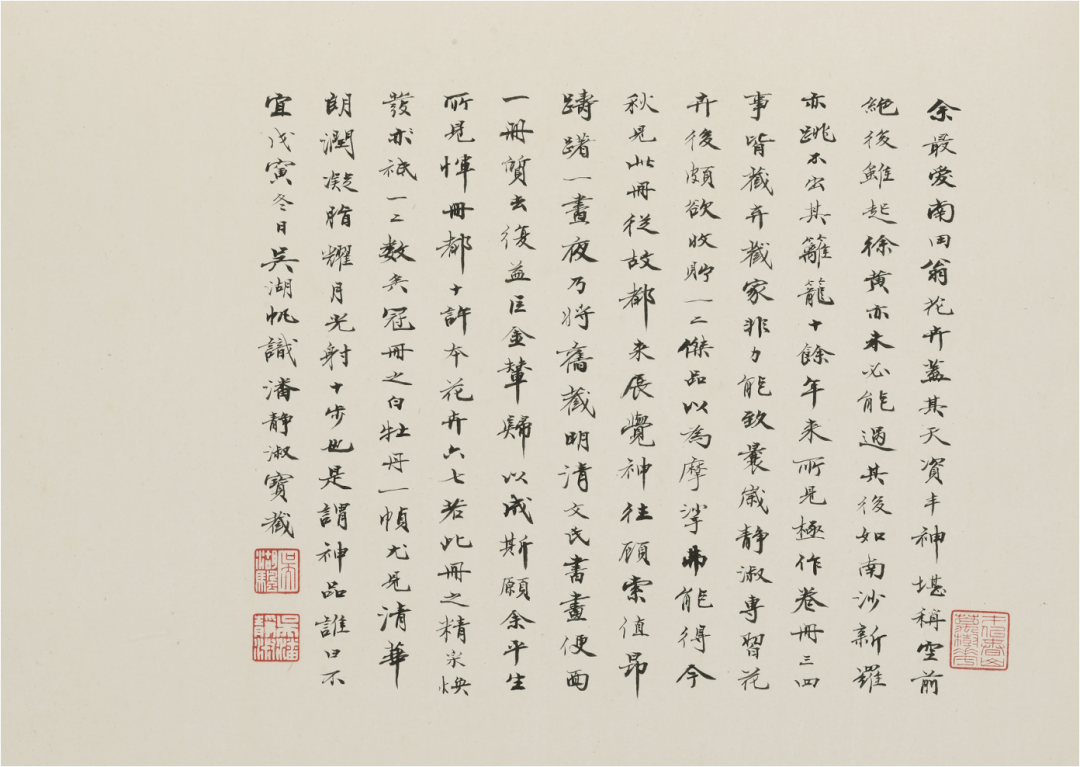 余最愛南田翁花卉蓋其天資丰神堪稱空前
絕後雖起徐黃亦未必能過其後如南沙新羅
亦跳不出其籬籠十餘年來所見極作卷冊三四
事皆藏弆藏家非力能致曩歲靜淑專習花
卉後頗欲收貯一二傑品以為摩挲弗能得今
秋見此冊從故都來展覺神往顧索值昂
躊躇一晝夜乃將舊藏明清文氏書畫便面
一冊質去復益巨金輦歸以成斯願余平生
所見惲冊都十許本花卉六七若此冊之精采煥
發亦祇一二數矣冠冊之白牡丹一幀尤見清華
朗潤凝脂耀月光射十步也是謂神品誰曰不
宜戊寅冬日吳湖帆識潘靜淑寶藏